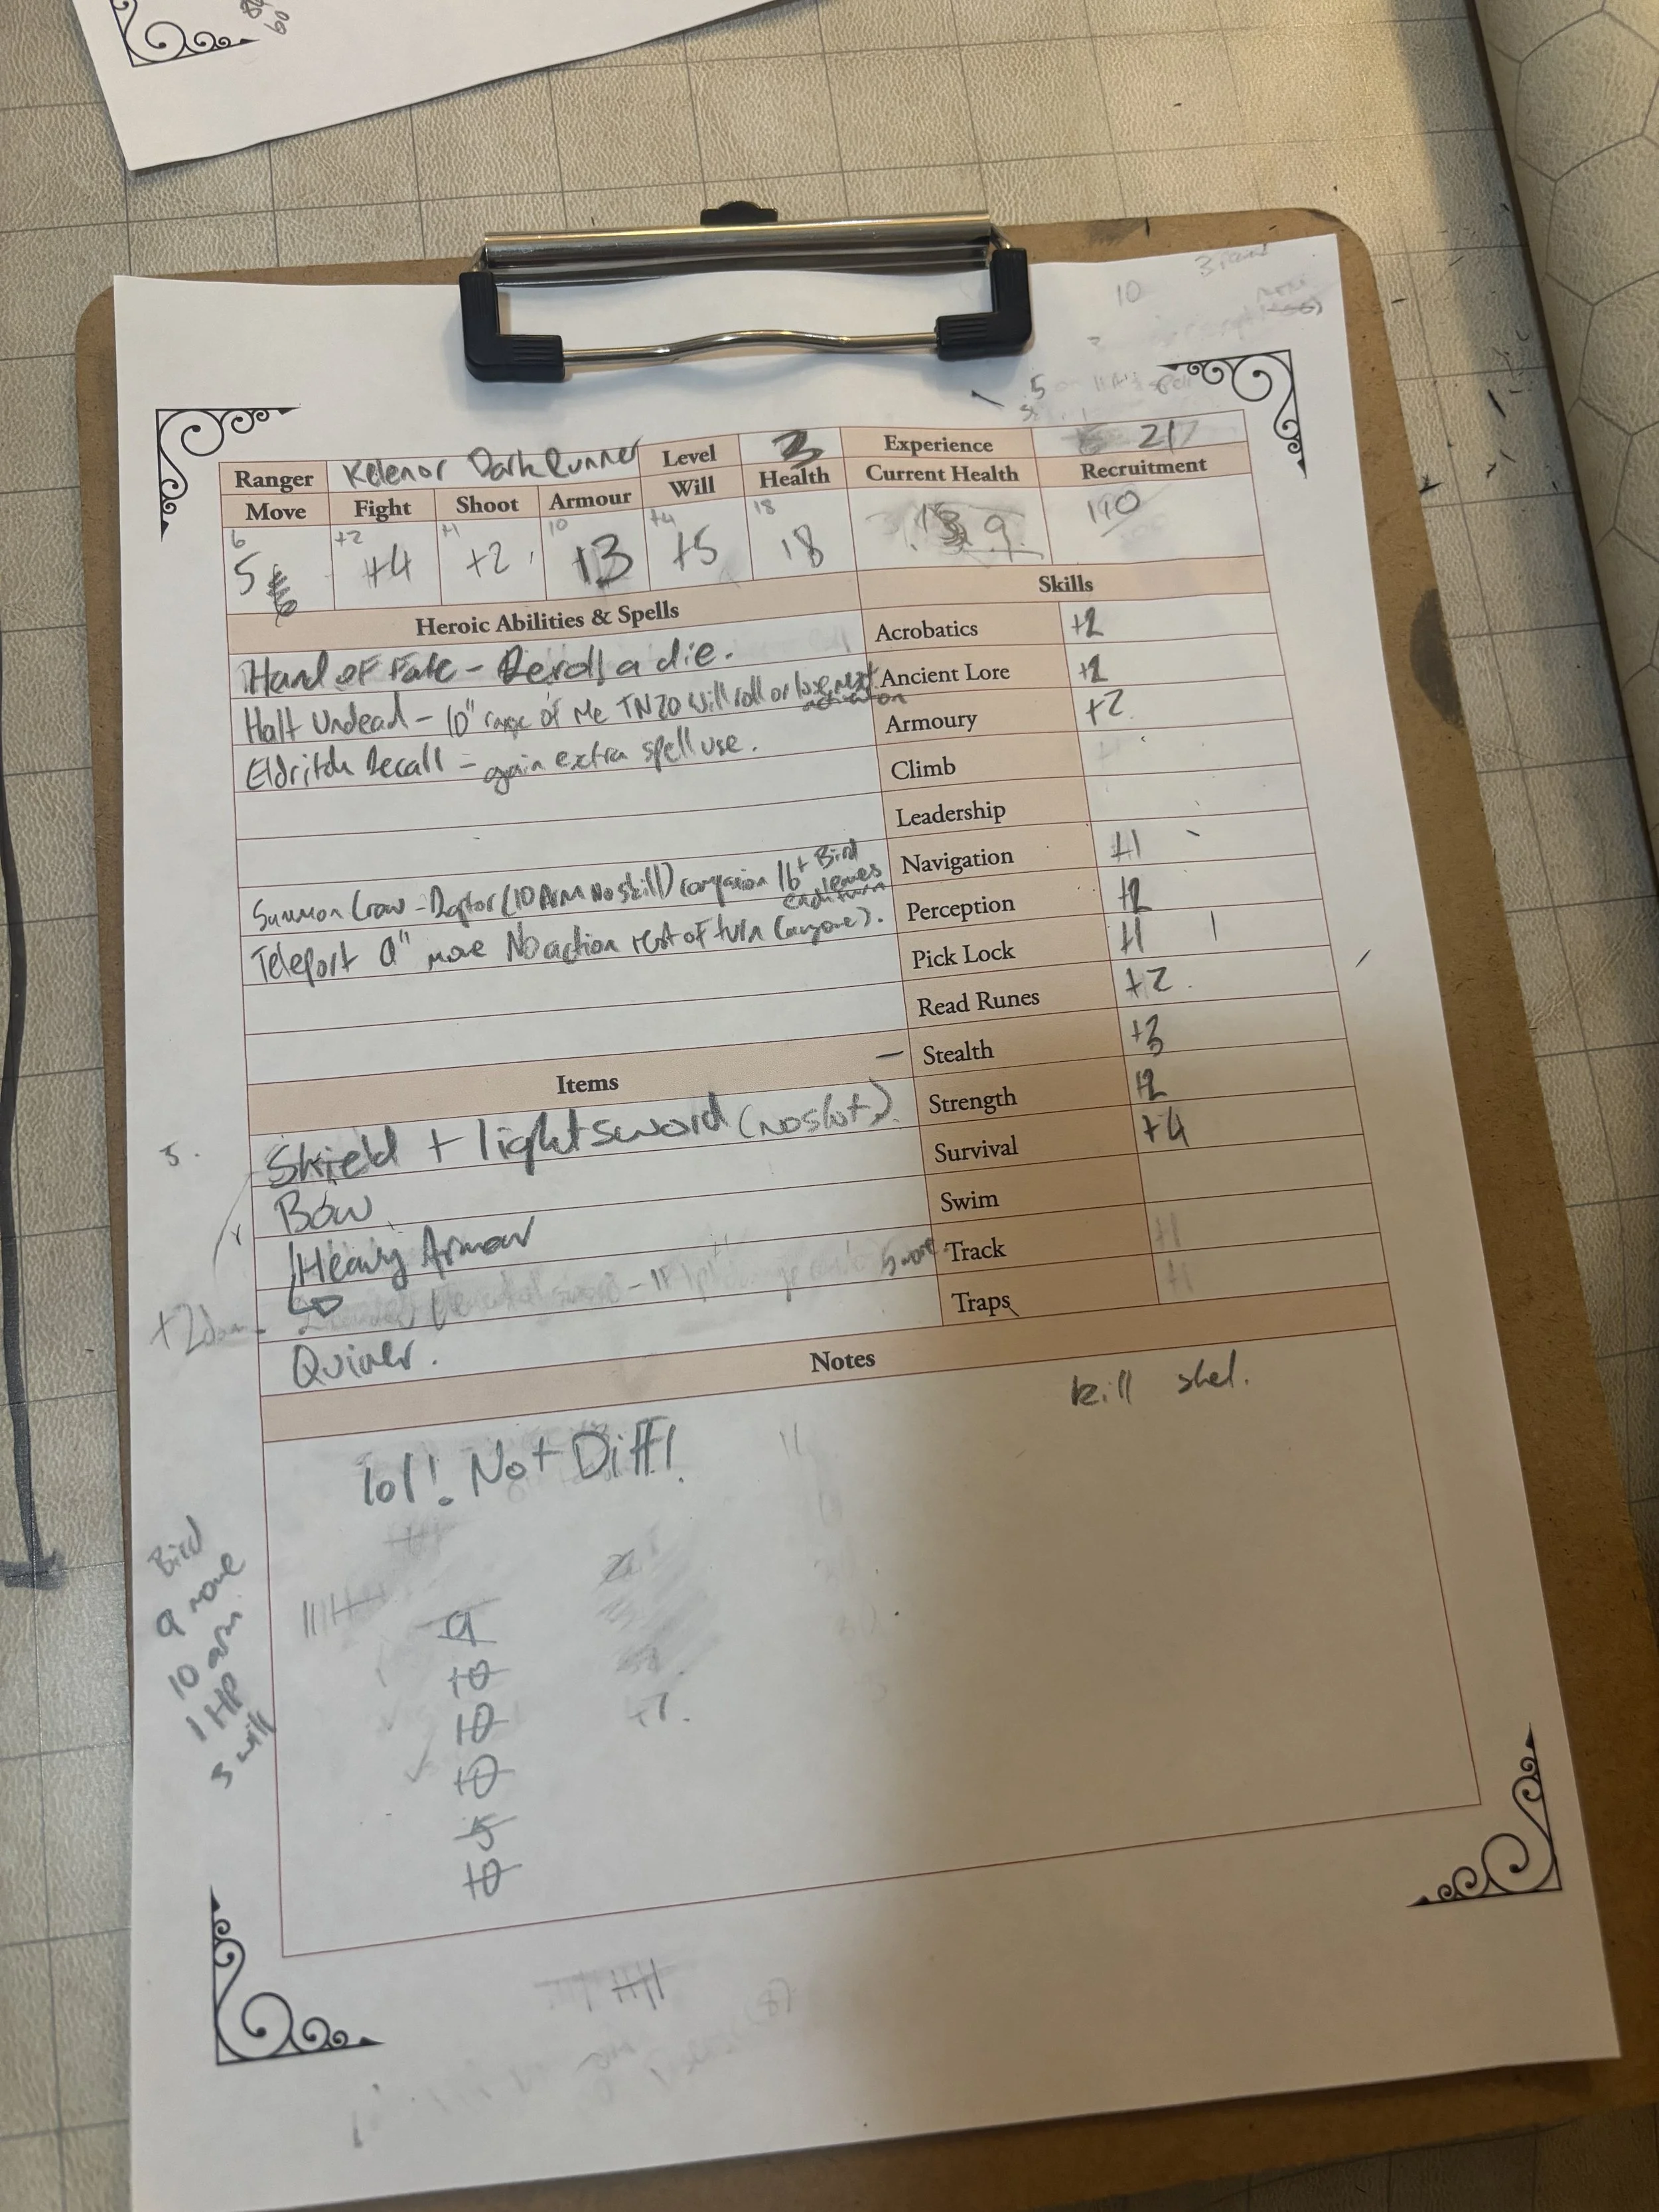 60
10
5
Ranger Kelenor DarkRunner Level 3 Experience 217
Move Fight Shoot Armour Will Health Current Health Recruitment
6 +2 +1 10 +4 18
5 +4 +2 13 +5 18 9 190
Heroic Abilities & Spells Skills
Hand of Fate - Reroll a die.
Halt Undead - 10" range of Me TN20 Will roll or lose next activation
Eldritch Recall - gain extra spell use.
Summon Crow - Raptor (10 Arm No skill) companion 16+ Bird leaves each turn
Teleport 9" move No action rest of turn (anyone).
Acrobatics +2
Ancient Lore +2
Armoury +2
Climb
Leadership
Navigation +1
Perception +2
Pick Lock +1
Read Runes +2
Stealth +3
Strength +2
Survival +4
Swim
Track +1
Traps +1
Items
Shield + light sword (no slot).
Bow
Heavy Armour
Quiver.
Notes
kill skel.
lol! Not Diff!
9
10
10
10
5
10
+7.
Bird
9 move
10 arm
1 HP
3 will